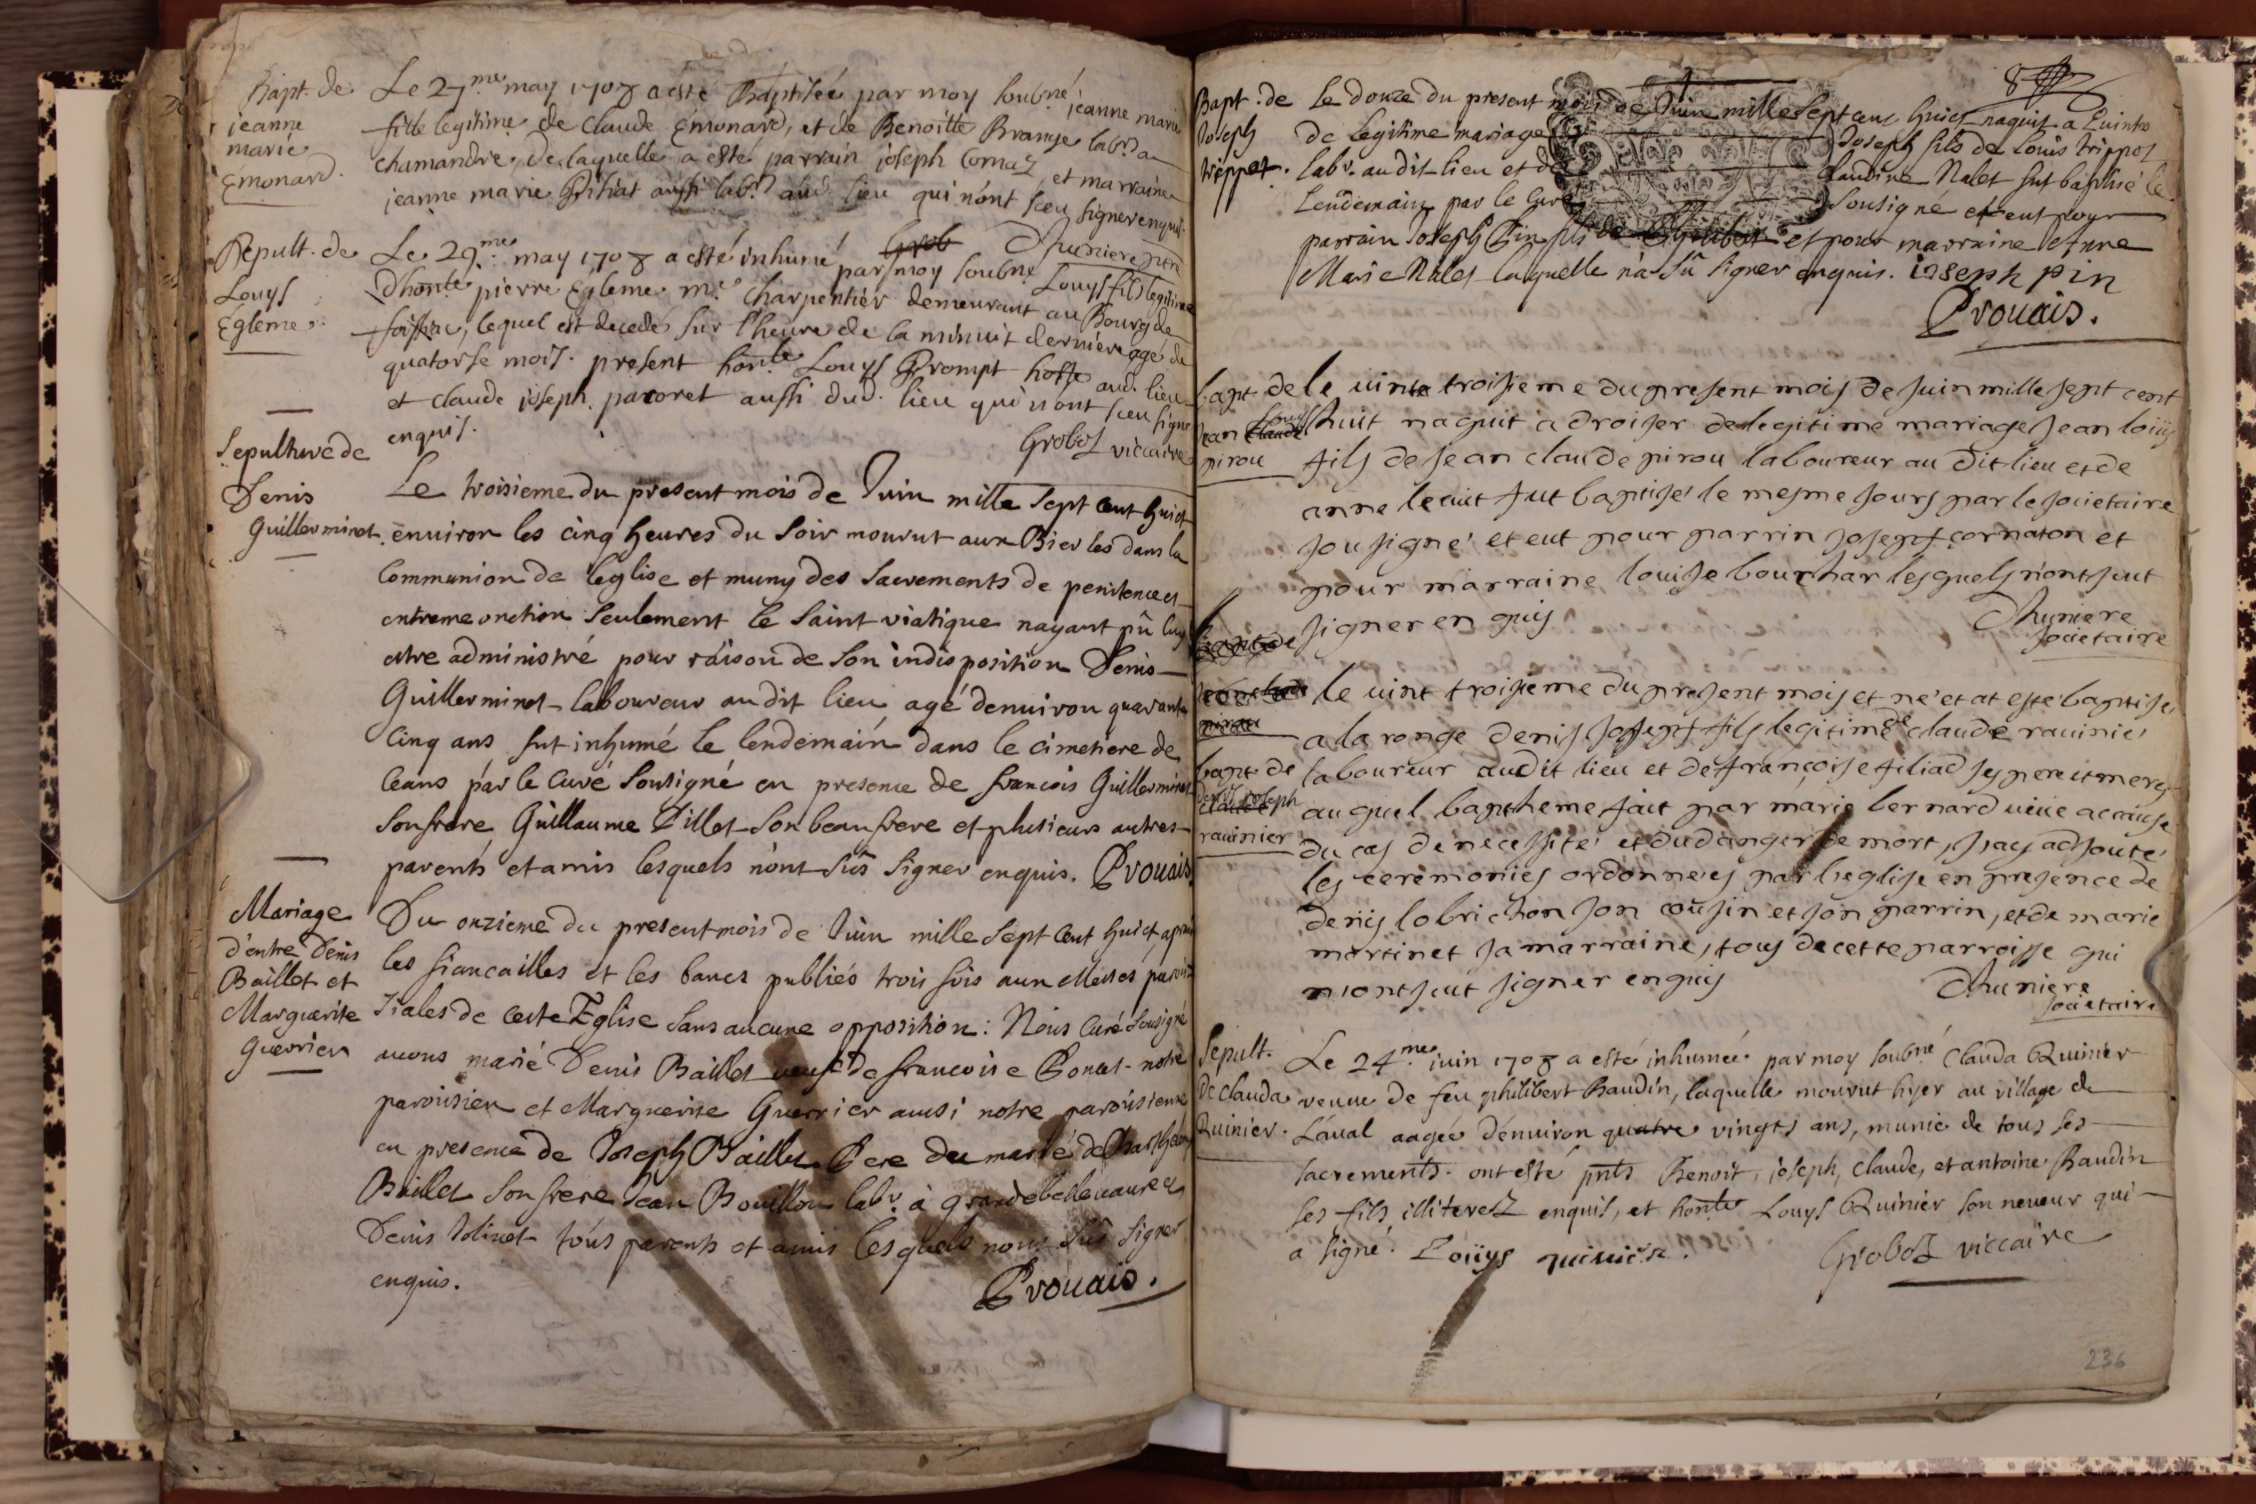 Bapt. de
jeanne
marie
Emonard.
Le 27.me may 1708 a esté Baptisée par moy soubné jeanne marie
fille legitime de Claude Emonard, et de Benoitte Brange labr. a
chamandre, de laquelle a esté parrain joseph Comaz, et marraine
jeanne marie Pihiat aussi labr. aud. lieu qui n'ont sceu signer enquis.
Sepult. de
Louys
Egleme.
Le 29.me may 1708 a esté inhumé par moy soubné Louys fils legitime
D'honte. pierre Egleme me. charpentier demeurant au Bourg de
foissia, lequel est decedé sur l'heure de la minuit derniere agé de
quatorse mois. present honte. Louys Prompt hoste aud. lieu
et claude joseph pacoret aussi dud. lieu qui n'ont sceu signe
enquis.
Groboz viccaire
Sepulture de
Denis
Guillerminet.
Le troisieme du present mois de Juin mille sept cent huict
environ les cinq heures du soir mourut aux Bierles dans la
Communion de leglise et muny des sacrements de penitence et
extreme onction seulement le saint viatique nayant pû luy
estre administré pour raison de son indisposition Denis
Guillerminet laboureur au dit lieu agé denuiron quarante
Cinq ans fut inhumé le lendemain dans le cimetiere de
ceans par le curé sousigné en presence de francois Guillerminet
son frere Guillaume Pillet son beau frere et plusieurs autres
parents et amis lesquels n'ont sûs signer enquis. Prouais.
Mariage
d'entre Denis
Baillet et
Marguerite
Guerrier
Du onzieme du present mois de Juin mille sept cent huict, apres
les fiancailles et les bancs publiés trois fois aux Messes parois
siales de ceste Eglise sans aucune opposition: Nous Curé sousigné
auons marié Denis Baillet veuf de francoise Poncet notre
paroisien et Marguerite Guerrier aussi notre paroisienne
en presence de Joseph Baillet Pere du marié de Barthelemy
Baillet son frere Jean Bouillon labr. à grandebelleuaure et
Denis Jolinet tous parents et amis lesquels nont sûs signer
enquis.
Prouais.
8
Bapt. de
Joseph
trippet.
Le douze du present mois de Juin mille sept cens huict naquit a
de legitime mariage Joseph fils de Louis trippoz
labr. au dit lieu et de Claudine Nalet fut baptisé le
Lendemain par le Curé sousigné et eut pour
parrain Joseph Pin fils de et pour marraine Anne
Marie Nalet laquelle n'a sû signer enquis. ioseph pin
Prouais.
bapt. de
jean Louys
pirou
le uinte troisieme du present mois de juin mille sept cent
huit naquit a droiser de legitime mariage Jean loüis
fils de jean claude pirou laboureur au dit lieu et de
anne lecuit fut baptisé le mesme jours par le societaire
sousigné et eut pour parrin joseph cornaton et
pour marraine louise bouchar lesquels n'ont sceut
signer en quis
Chuniere
societaire
bapt. de
Denis joseph
rauinier
le uint troisieme du present mois et né et at esté baptisé
a la ronge denis joseph fils legitime de claude rauinié
laboureur audit lieu et de françoise filiad ses pere et mere
auquel baptheme fait par marie bernard ueüe a cause
du cas de necessité et du danger de mort, jay adjouté
les ceremonies ordonnées par l'eglise en presence de
denis lobrichon son cousin et son parrin, et de marie
martinet sa marraine, tous de cette parroisse qui
n'ont sceut signer enquis
Chuniere
societaire
Sepult.
de Clauda
Quinier.
Le 24.me juin 1708 a esté inhumée par moy soubné Clauda Quinier
veuue de feu philibert Baudin, laquelle mourut hyer au village de
Laual aagée d'enuiron quatre vingts ans, munie de tous ses
sacrements. ont esté pnts Benoit, joseph, Claude, et antoine Baudin
ses fils illiterez enquis, et honte. Louys Quinier son neueur qui
a signé. Loüys quiniér.
Groboz viccaire
236